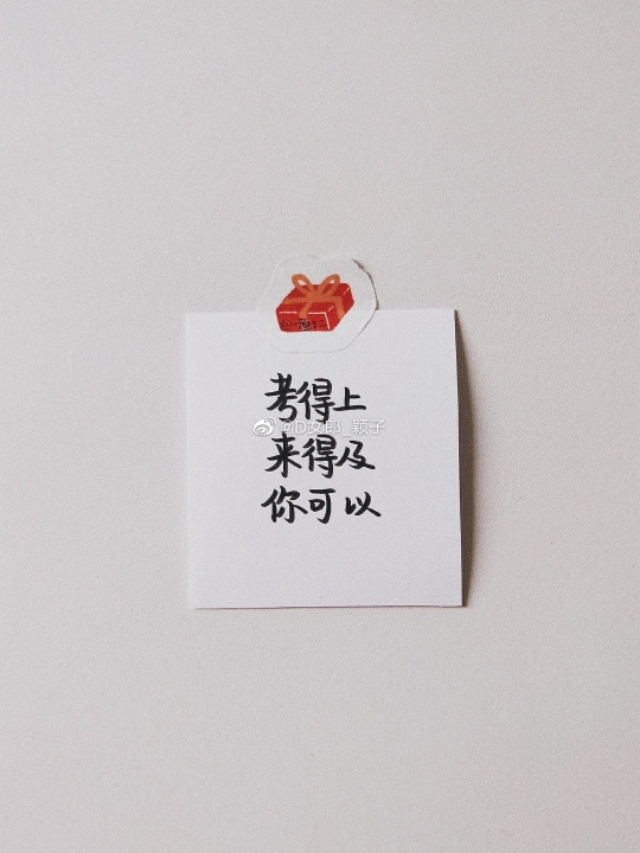 考得上
@D女郎_颖子
来得及
你可以